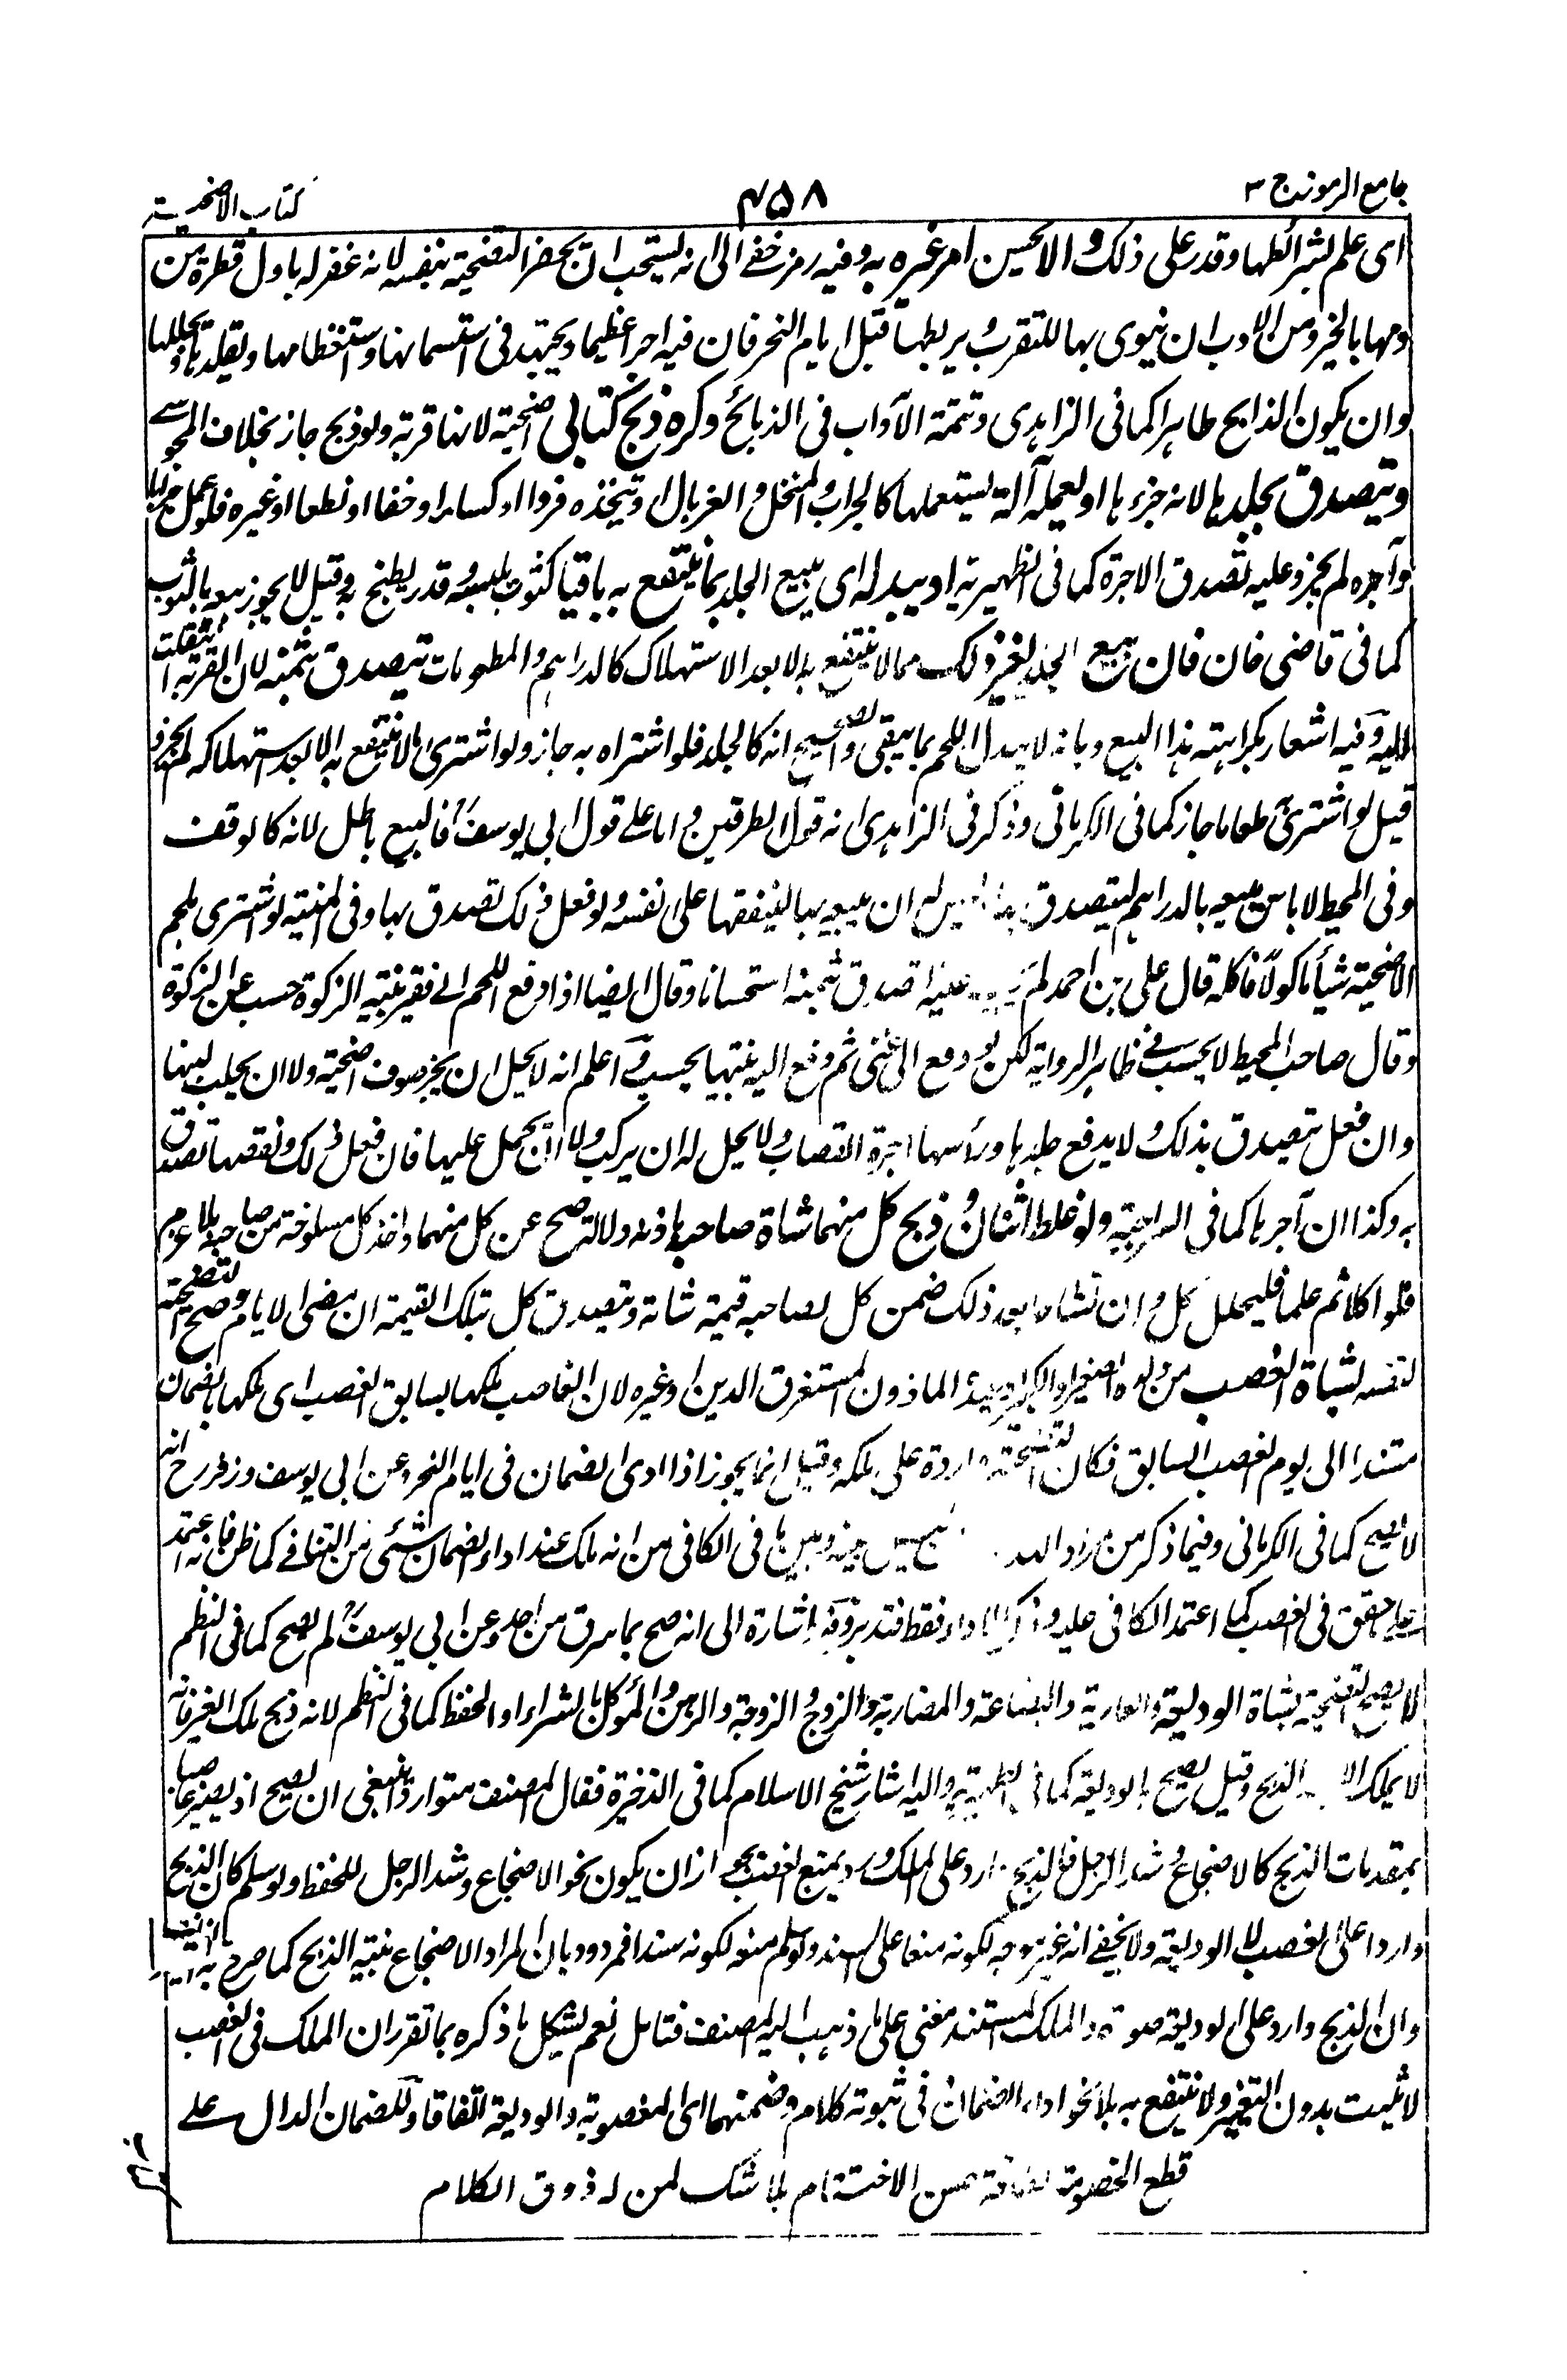 جامع الرموز ج ٣
٤٥٨
كتاب الاضحية
اى علم لشرائطها وقدر على ذلك والا يحسين امر غيره به وفيه رمز خفے الى انه يستحب ان يحضر التضحية بنفسه لانه غفر له باول قطرة من
دمها بالخير ومن الادب ان ينوى بها للتقرب يربطها قبل ايام النحر فان فيه اجرا عظيما ويجتهد فى استسمانها واستعظامها وتقليدها وتجليلها
وان يكون الذابح طاهرا كما فى الزاهدى وتتمة الآداب فى الذبائح وكره ذبح كتابى اضحية لانها قربة ولو ذبح جاز بخلاف المجوسے
ويتصدق بجلدها لانه جزءها او يعمله آلة يستعملها كالجراب والمنخل والغربال او يتخذه فروا او كساء او خفا او نطعا او غيره فلو عمل جرابا
وآجره لم يجز وعليه تصدق الاجرة كما فى الظهيرية او يبدله اى يبيع الجلد بما ينتفع به باقيا كثوب يلبسه وقدر يطبخ به وقيل لا يجوز بيعه بالثوب
كما فى قاضى خان فان بيع الجلد لغير ذلك مما لا ينتفع به الا بعد الاستهلاك كالدراهم والمطعومات يتصدق بثمنه لان القربة انتقلت
اليه وفيه اشعار بكراهته هذا البيع وبانه لا يبدل اللحم بما يبقى والصحيح انه كالجلد فلو اشتراه به جاز ولو اشترى ما لا ينتفع به الا بعد استهلاكه لم يجز و
قيل لو اشترى طعاما جاز كما فى الكرمانى وذكر فى الزاهدى انه قول الطرفين واما على قول ابى يوسف فالبيع باطل لانه كالوقف
وفى المحيط لا باس ببيعه بالدراهم ليتصدق بها له ان يبيعه بها لينفقها على نفسه ولو فعل ذلك تصدق بها وفى المنية لو اشترى بلحم
الاضحية شيأ ماكولا فاكله قال على بن احمد لم عليه تصدق ثمنه استحسانا وقال ايضا اذا دفع اللحم الى فقير بنية الزكوة حسب عن الزكوة
وقال صاحب المحيط لا يحسب فى ظاهر الرواية لكن لو دفع الى غنى ثم دفع اليه بنيتها يحسب واعلم انه لا يحل ان يجز صوف اضحية ولا ان يحلب لبنها
وان فعل يتصدق بذلك ولا يدفع جلدها ورأسها اجرة القصاب ولا يحل له ان يركب ولا ان يحمل عليها فان فعل ذلك ونقصها تصدق
به وكذا ان آجرها كما فى السراجية ولو غلط اثنان وذبح كل منهما شاة صاحبه باذنه دلالة صح عن كل منهما واخذ كل مسلوخة من صاحبه بلا غرم
فلو اكلا ثم علما فليحلل كل وان تشاحا بعد ذلك ضمن كل لصاحبه قيمة شاته ويتصدق كل بتلك القيمة ان مضى الايام وصح التضحية
لنفسه بشاة الغصب من ولده الصغير او الكبير او عبده الماذون المستغرق الدين او غيره لان الغاصب يملكها بسابق الغصب اى يملكها بالضمان
مستندا الى يوم الغصب السابق فكان التضحية واردة على ملكه وقيل انما يجوز اذا ادى الضمان فى ايام النحر وعن ابى يوسف وزفر رح انه
لا تصح كما فى الكرمانى وفيما ذكر من بينه وبين ما فى الكافى من انه ملك عند اداء الضمان شئى من التنافے كما ظن فانه اعتمد
على تحقق فى الغصب كما اعتمد الكافى عليه اداء فقط فتدبر وفيه اشارة الى انه صح بما سرق من احد وعن ابى يوسف لم يصح كما فى النظم
لا يصح التضحية بشاة الوديعة والعارية والبضاعة والمضاربة والزوج والزوجة والرهن والموكل بالشراء او الحفظ كما فى النظم لانه ذبح ملك الغير فانه
لا يملك الا الذبح وقيل يصح بالوديعة كما فى الظهيرية واليه اشار شيخ الاسلام كما فى الذخيرة فقال المصنف متواردا ينبغى ان يصح اذ يصير غاصبا
بمقدمات الذبح كالاضجاع وشد الرجل فالذبح وارد على الملك ويمنع الغصب بجواز ان يكون نحو الاضجاع وشد الرجل للحفظ ولو سلم كان الذبح
واردا على الغصب لا الوديعة ولا يخفى انه غير موجه لكونه منعا على السند ولو سلم منعه لكونه سندا فمردود بان المراد الاضجاع بنية الذبح كما صرح به
وان الذبح وارد على الوديعة صورة والملك المستند مغنى على ما ذهب اليه المصنف فتامل نعم يشكل ما ذكره بما تقرر ان الملك فى الغصب
لا يثبت بدون التغير ولا ينتفع به بلا نحو اداء الضمان فى ثبوته كلام وضمنهما اى المغصوبة والوديعة اتفاقا وللضمان الدال على
قطع الخصومة حسن الاختتام بلا شك لمن له ذوق الكلام